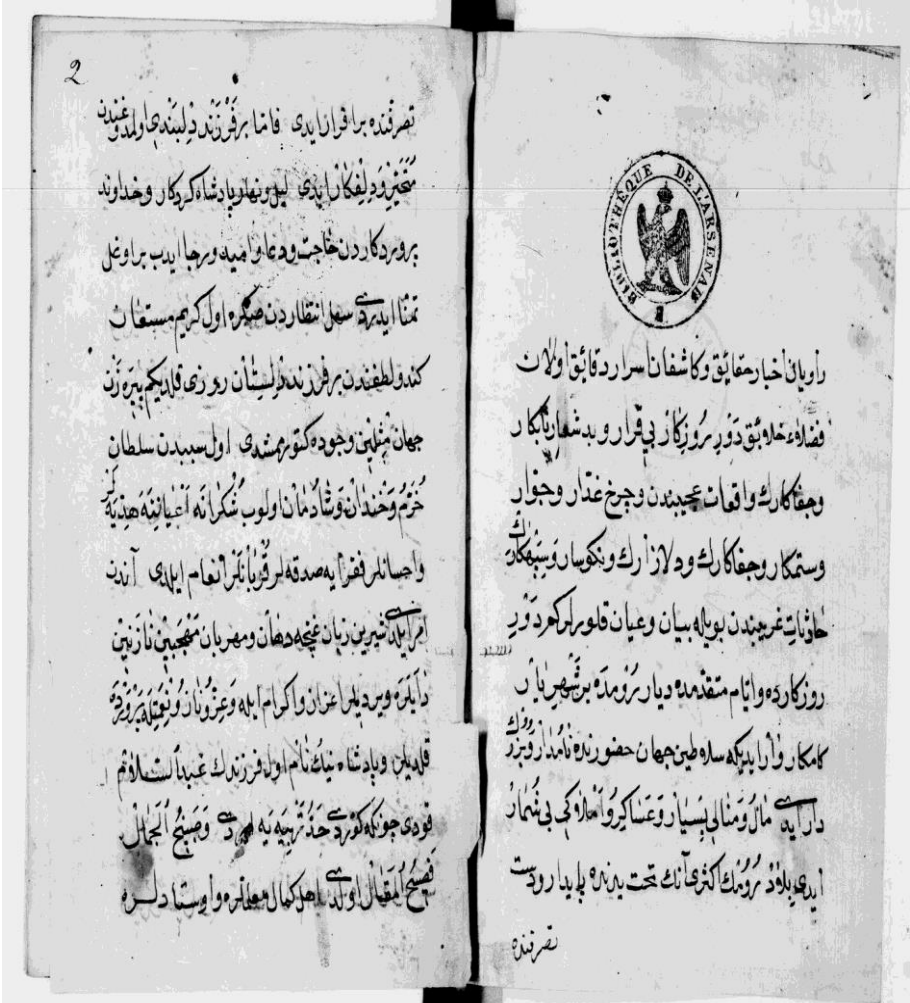 BIBLIOTHÈQUE DE L'ARSENAL
راويان اخبار حقايق وكاشفان اسرار دقايق اولان
فضلاء خلايق دور روزكار بى قرار وبد شعار نابكار
وجفاكارك واقعات عجيبندن وچرخ غدار وجوار
وستمكار وجفاكارك ودلازارك ونكوسار وسيهكارك
حادثات غريبندن بويله بيان وعيان قلورلركم دور
روزكارده وايام متقدمده ديار رومده بر شهريار
كامكار وار ايديكه سلاطين جهان حضورنده نامدار وبزرك
دار ايدى مال ومنالى بسيار وعساكر واملاكى بى شمار
ايدى بلاد رومك اكثرى آنك تحت يدنده پايدار ودست
تصرفنده
2
تصرفنده برقرار ايدى فاما بر فرزند دلبندى اولمدوغندن
متحير ودلفكار ايدى ليل ونهار پادشاه كردكار وخداوند
پروردكاردن حاجت ودعا واميد ورجا ايدب بر اوغل
تمنا ايدردى انتظاردن صكره اول كريم مستعان
كندو لطفندن بر فرزند دلستان روزى قلديكم پيره زن
جهان مثلين وجوده كتورمشدى اول سببدن سلطان
خرم وخندان وشادمان اولوب شكرانه اعيانينه هديه لر
واحسانلر فقرايه صدقه لر قربانلر انعام ايلدى آندن
امر ايلدى شيرين زبان غنچه دهان ومهربان مهجبين نازنين
دايلره ويرديلر اعزاز واكرام ايله وعز وناز ونعمتله پرورده
قلديلر وپادشاه نيك نام اول فرزندك عبدالسلام
قودى چونكه كوردى حد تربيه يه ايردى وصبيح الجمال
فصيح المقال اولدى اهل كمال معلملره واوستادلره